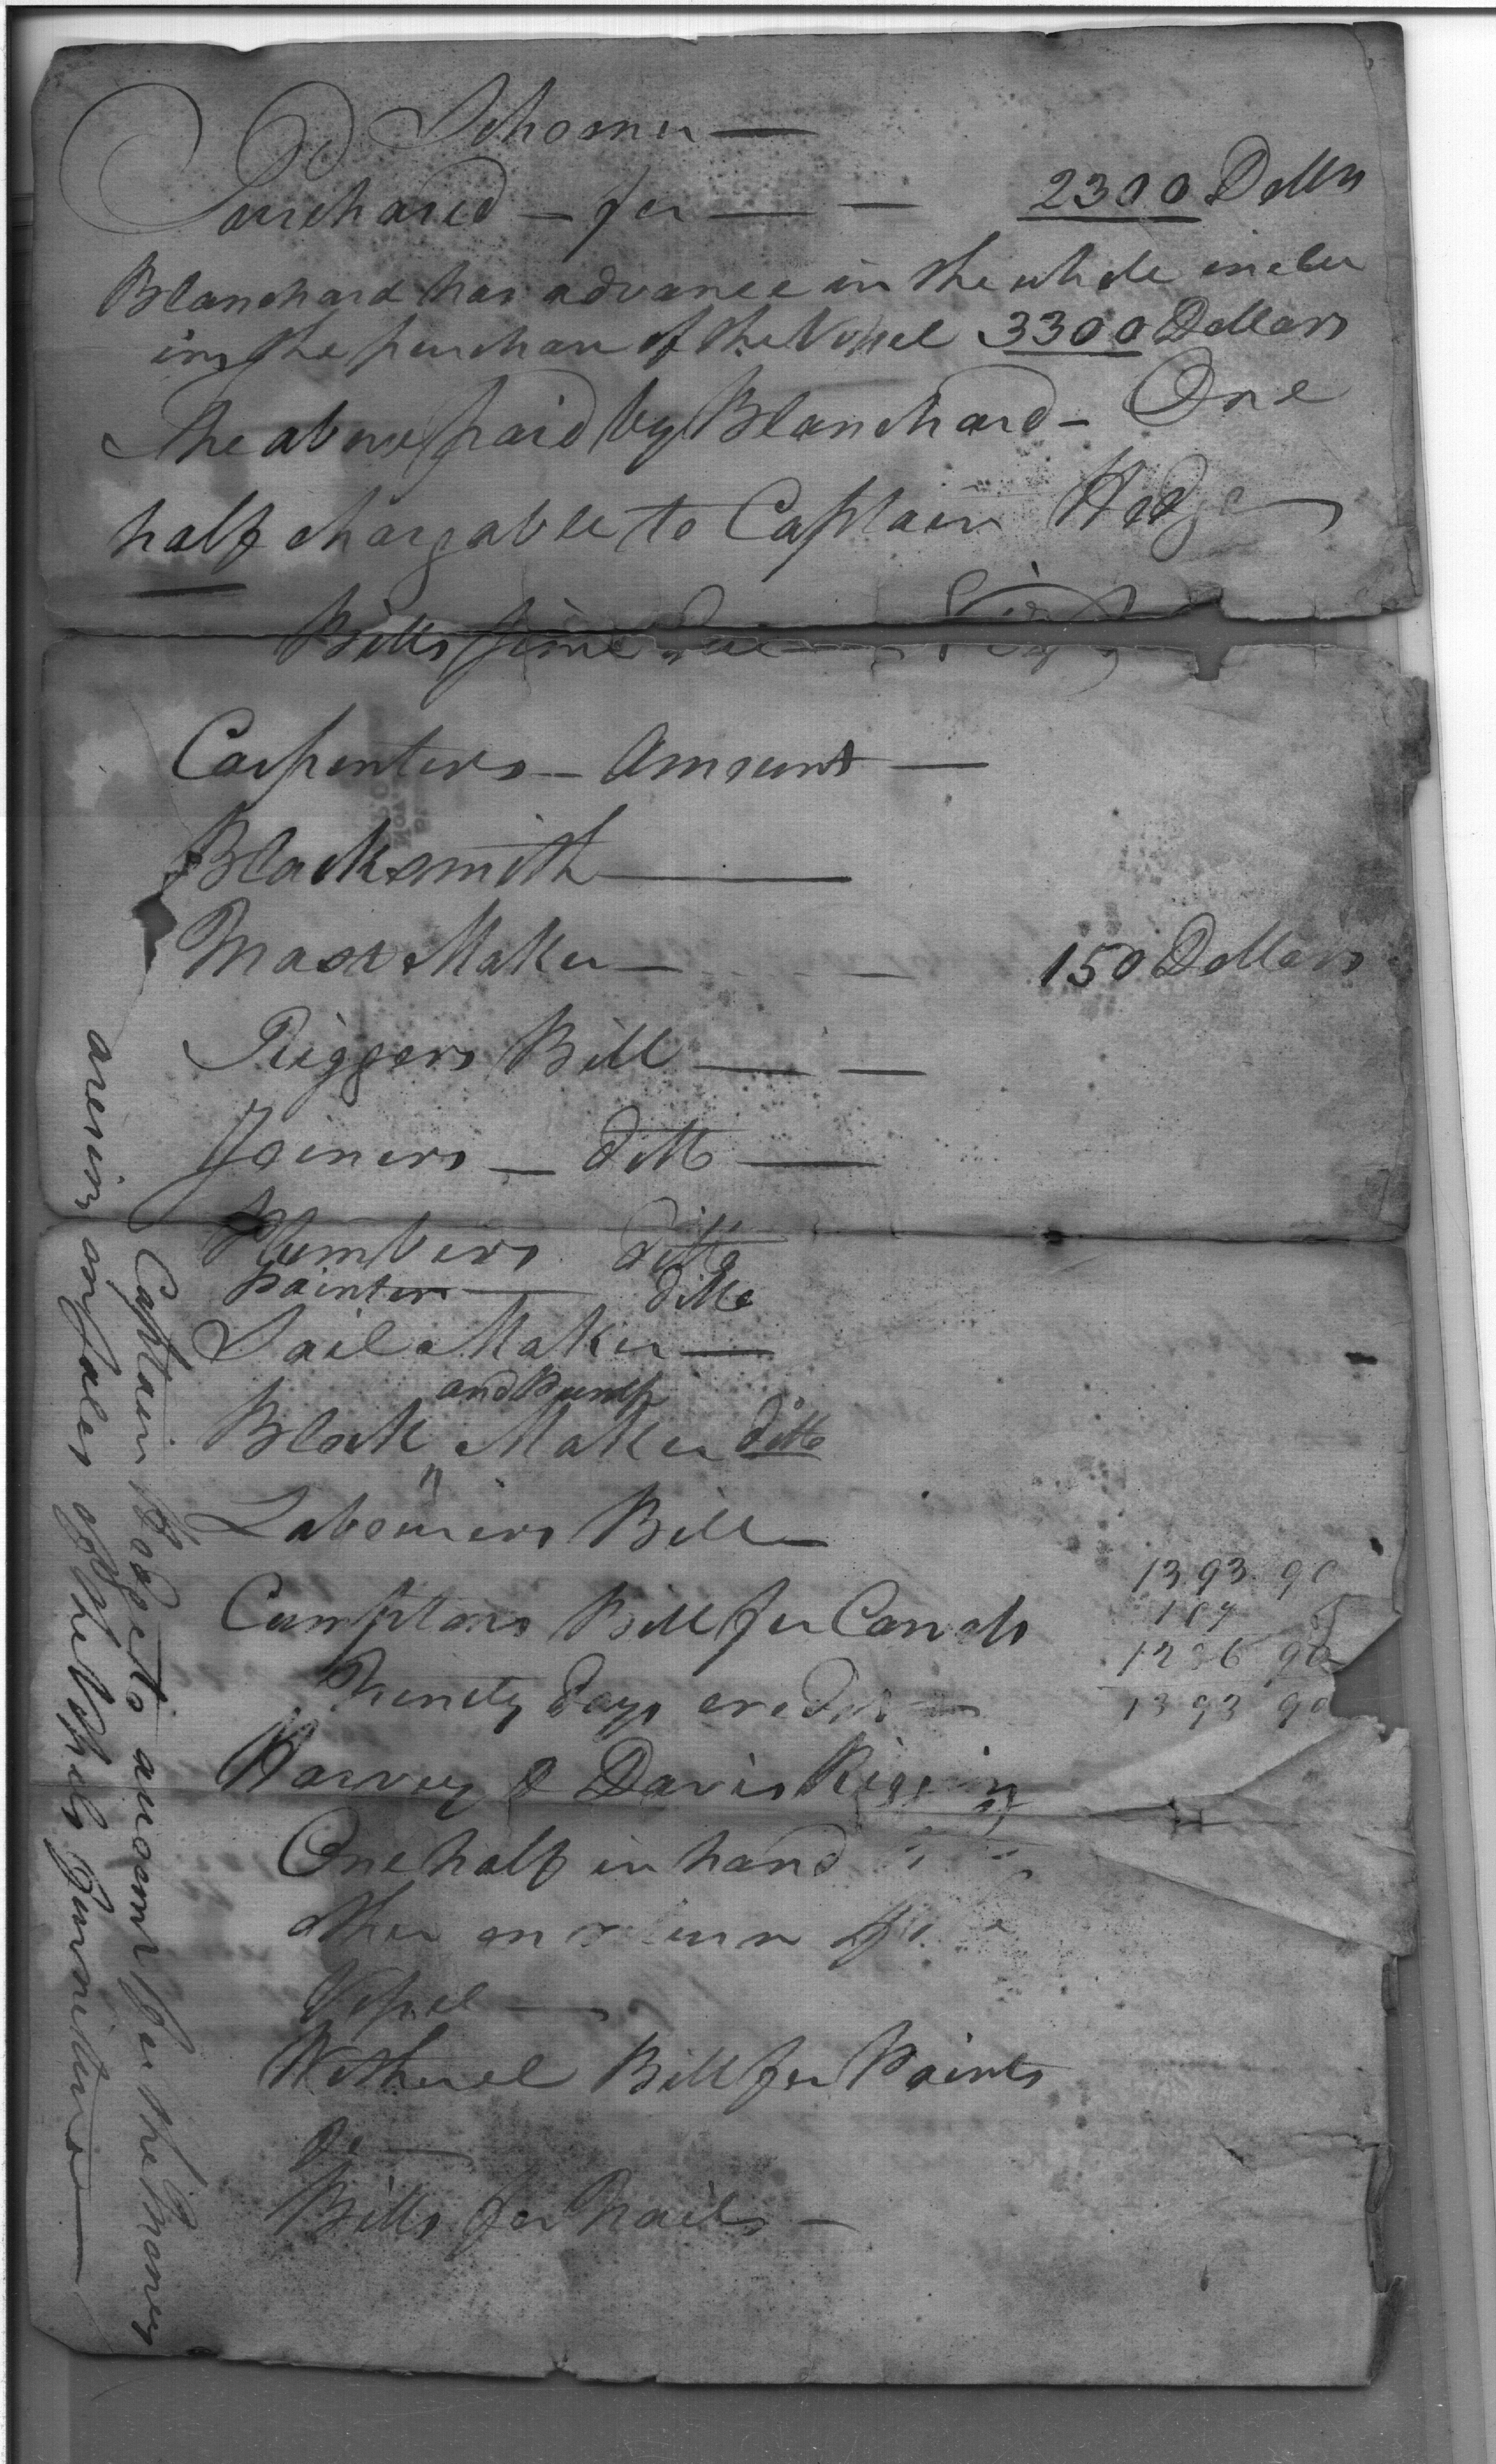 Schooner —
Purchased — for — — 2300 Dolls
Blanchard has advance in the whole inclu
ing the purchase of the Vessel 3300 Dollars
The above paid by Blanchard — One
half chargable to Captain Hodge
Bills
Carpenters — Amount —
Blacksmith —
Mast Maker — — 150 Dollars
Riggers Bill — —
Joiners — ditto —
Plumbers ditto
Painters — ditto
Sail Maker —
and Pump
Block Maker ditto
Labourers Bill —
Cumptons Bill for Canvls 1393 90
Ninety days credit — 1393 90
Harvey & Davis Riggin
One half in hand
other on
Vessel —
Witherel Bill for Paints
&c —
Bills for Nails —
Captain Hodge to account for the money
arising on sales of the Vessels furniture —